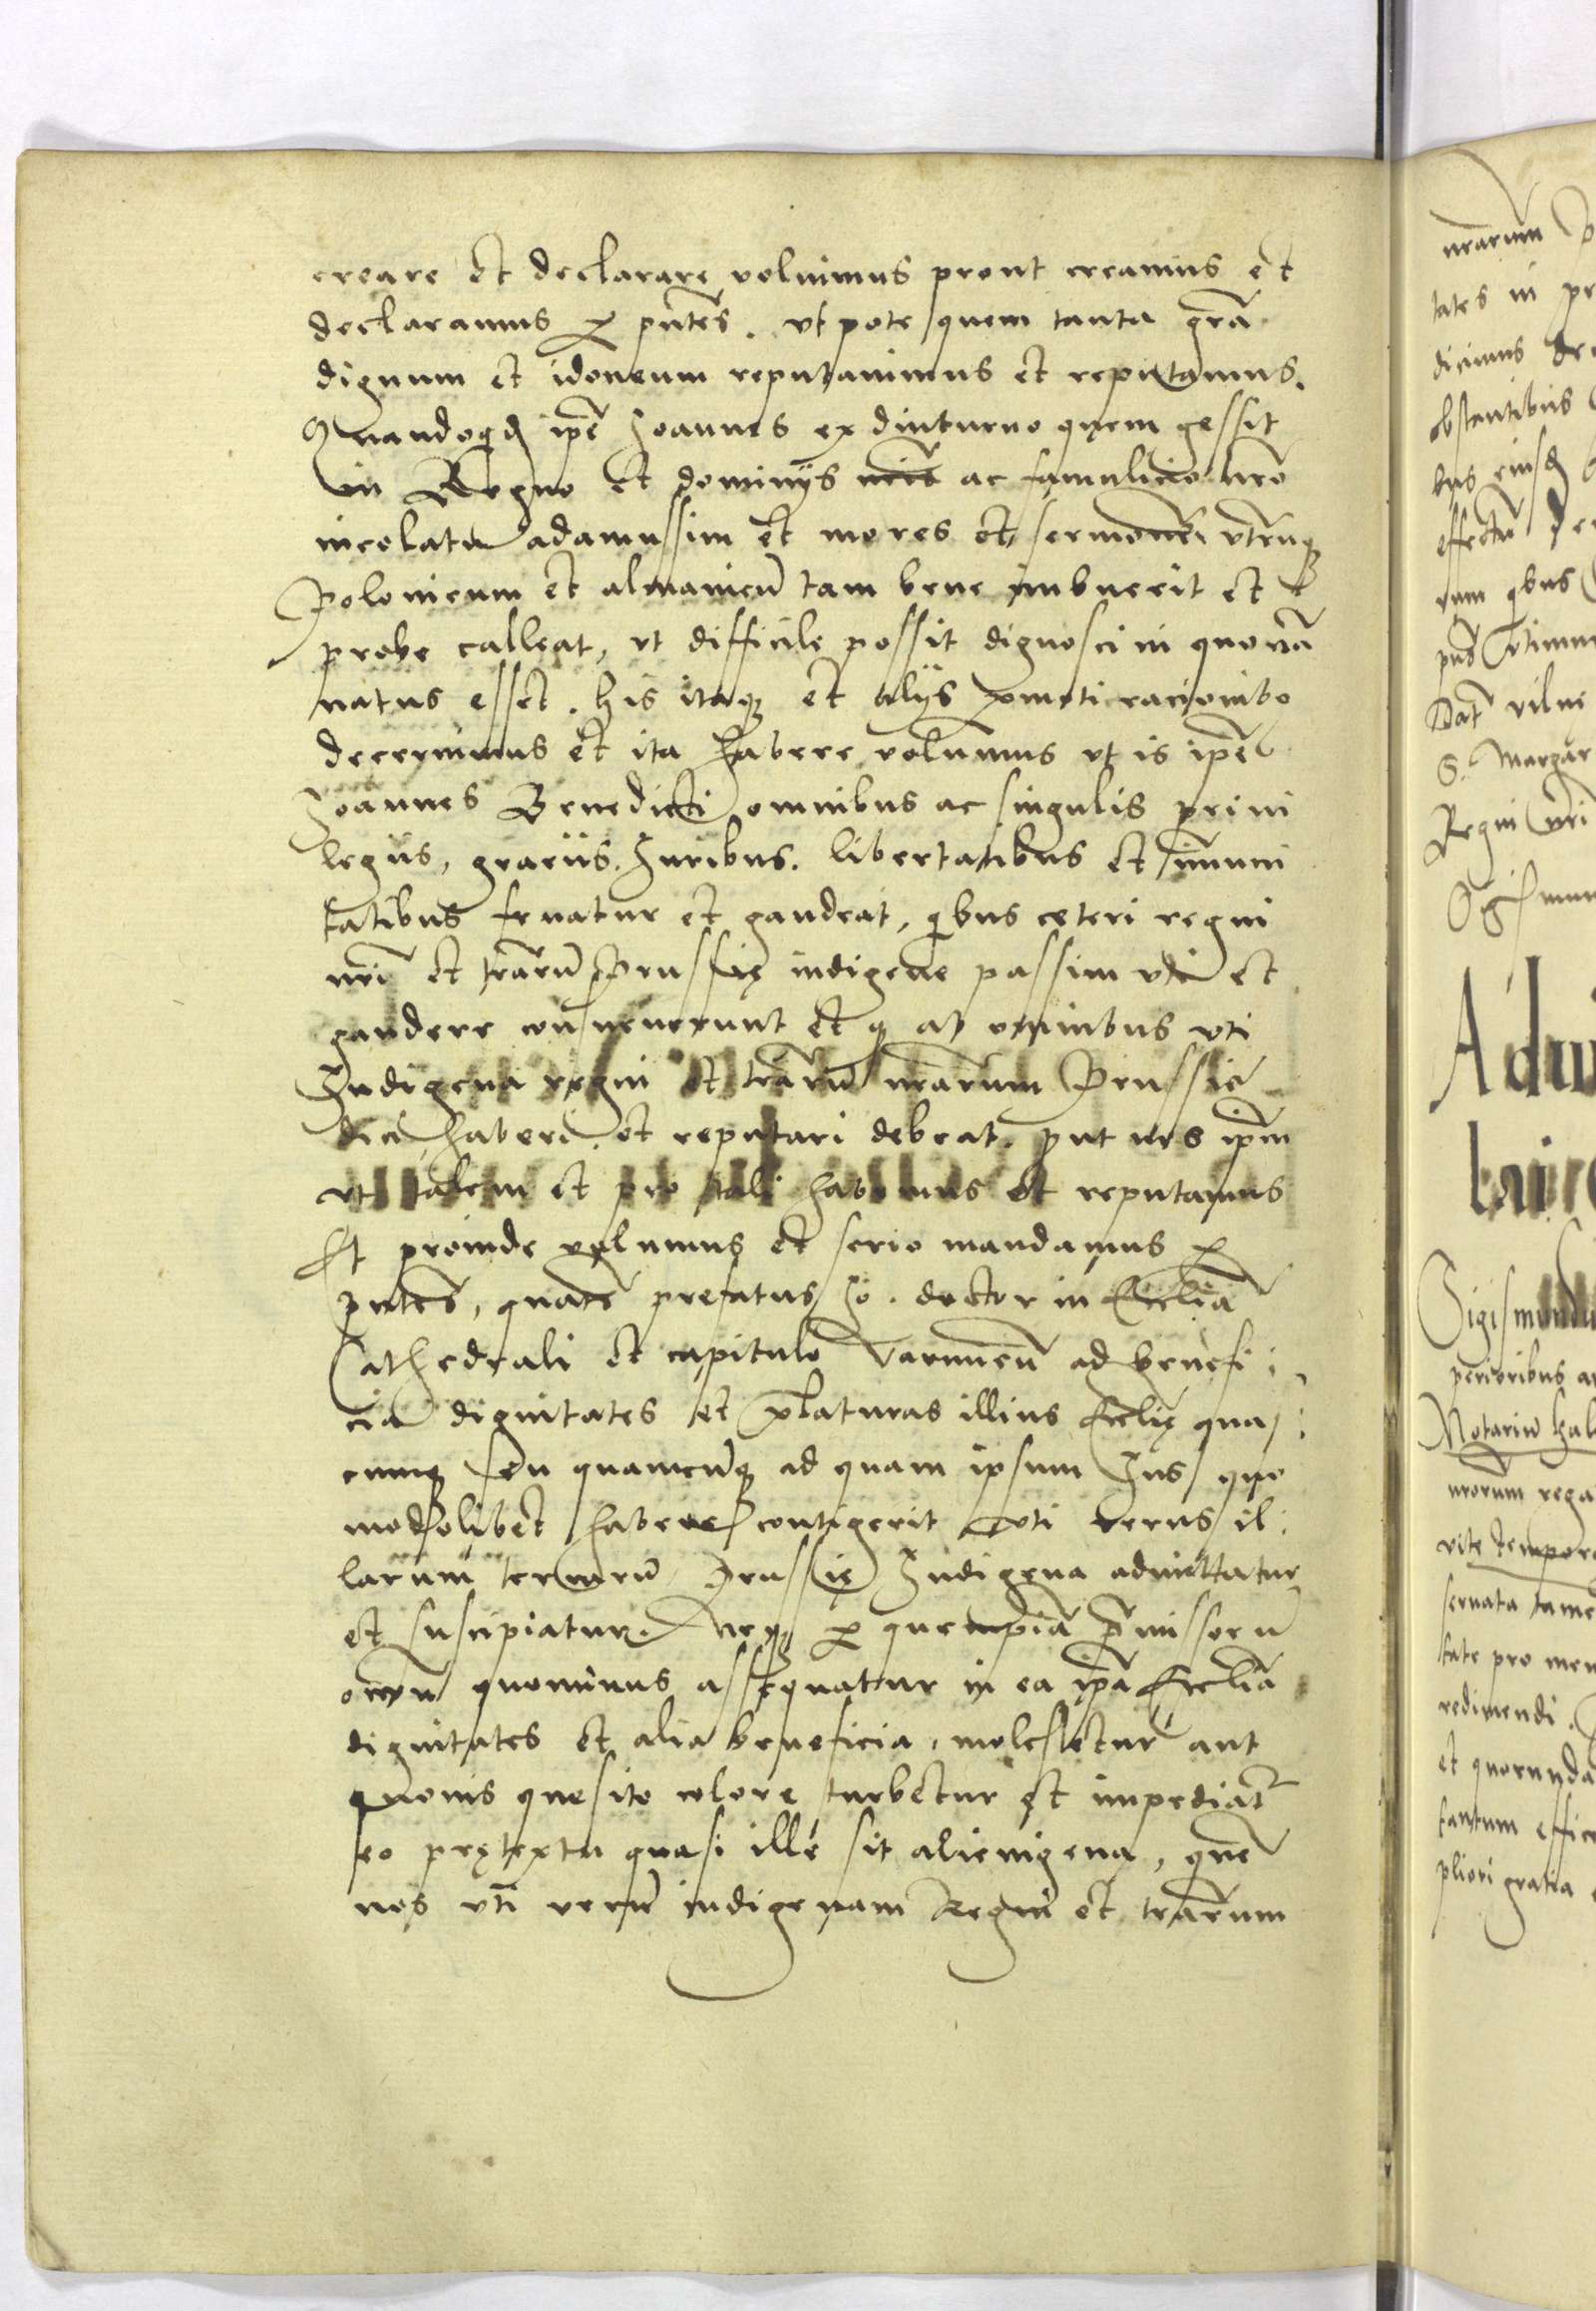 creare et declarare voluimus prout creamus et
declaramus ꝑ pntes. vt pote quem tanta gra
dignum et idoneum reputauimus et reputamus.
Quandoqͥdẽ ipẽ Joannes ex diuturno quem gessit
in Regno et dominijs nris ac famulicio nro
incolatu adamussim et mores et sermonem vtrunqꝫ
Polonicum et almanicũ tam bene imbuerit et
probe calleat, vt difficile possit dignosci in quo nã
natus esset. his itaqꝫ et alijs ꝓmoti racionibꝰ
decernimus et ita habere volumus vt is ipẽ
Joannes Benedicti omnibus ac singulis priui
legiis, graciis. Juribus. libertatibus et imuni
tatibus fruatur et gaudeat, qͥbus ceteri regni
nri et trarũ Prussię indigene passim vti et
gaudere consueuerunt et qꝫ ab omnibus vti
Indigena regni et trarũ nrarum Prussie
dici haberi et reputari debeat. ꝓut nos ipm
vt talem et pro tali habemus et reputamus
Et proinde volumus et serio mandamus ꝑ
pntes, quatẽ prefatus Jo. doctor in Ecclia
Cathedrali et capitulo Varmieñ ad benefi
cia dignitates et p̃laturas illius Ecclię qua
cunqꝫ seu quamcũqꝫ ad quam ipsum Jus quo
modolibet habere contigerit vti verus il
larum terrarũ Prussię Indigena admittatur
et suscipiatur. Neqꝫ ꝑ quempiã p̃missorũ
omniũ quominus assequatur in ea ipa Ecclia
dignitates et alia beneficia, molestetur aut
quouis quesito colore turbetur et impediat̃
eo prętextu quasi ille sit alienigena, quẽ
nos vti verũ indigenam Regni et trarum
nrarum
tates in
dicimus
obstantibus
bus eiusdẽ
effectũ
rum qͥbus
Dat̃ vilne
S. Margar
Regni nri
Sigismundu
perioribus
Notariũ
nrorum rega
vite tempor
seruata tame
tate pro
redimendi.
et quorunda
tantum
pliori gratia